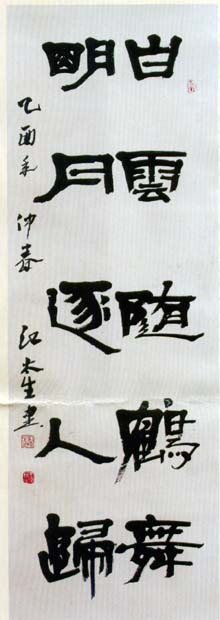 白雲随鶴舞
明月逐人歸
乙酉年仲春江木生書